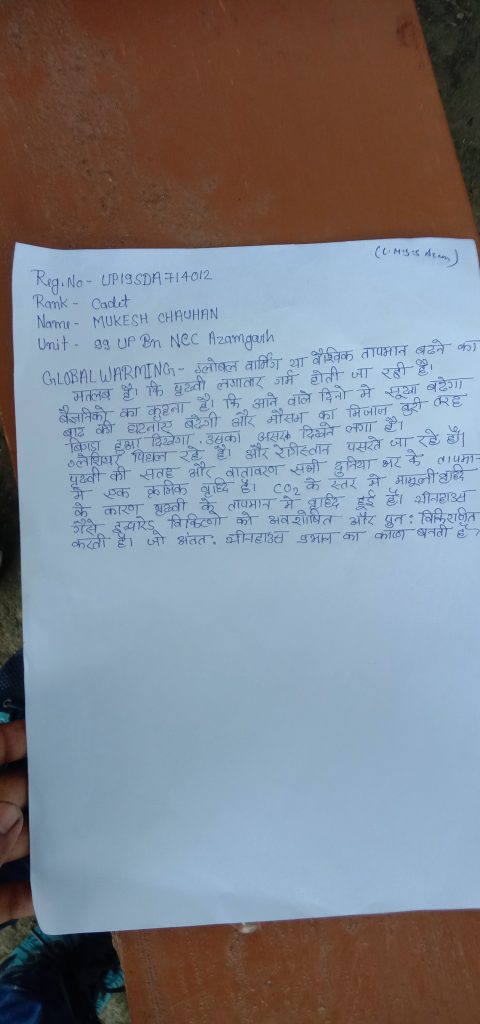 Reg. No - UP19SDA714012
Rank - Cadet
Name - MUKESH CHAUHAN
Unit - 99 UP Bn NCC Azamgarh
GLOBAL WARMING - ग्लोबल वार्मिंग या वैश्विक तापमान बढने का
मतलब है। कि पृथ्वी लगातार गर्म होती जा रही है।
वैज्ञानिको का कहना है। कि आने वाले दिनो मे सूखा बढेगा
बाढ की घटनाए बढेगी और मौसम का मिजाज बुरी तरह
बिगडा हुआ दिखेगा उसका असर दिखने लगा है।
ग्लेशियर पिघल रहे है। और रेगीस्तान पसरते जा रहे हैं।
पृथ्वी की सतह और वातावरण सभी दुनिया भर के तापमान
मे एक क्रमिक वृद्धि है। CO2 के स्तर मे मामूली वृद्धि
के कारण पृथ्वी के तापमान मे वृद्धि हुई है। ग्रीनहाउस
गैसे इन्फ्रारेड विकिरणो को अवशोषित और पुन: विकिरणित
करती है। जो अंतत: ग्रीनहाउस प्रभाव का कारण बनती है।